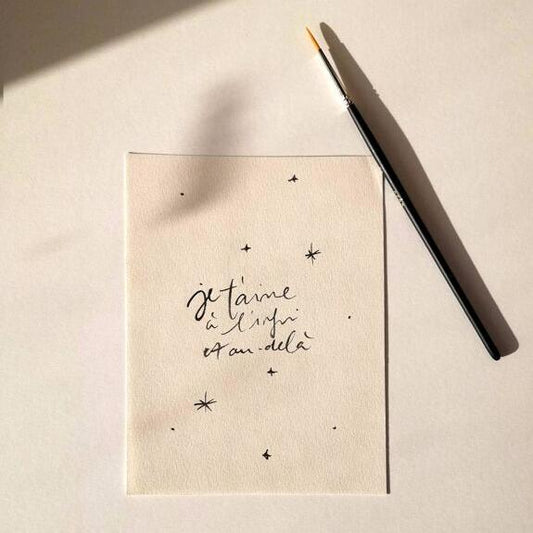 je t'aime
à l'infini
et au-delà